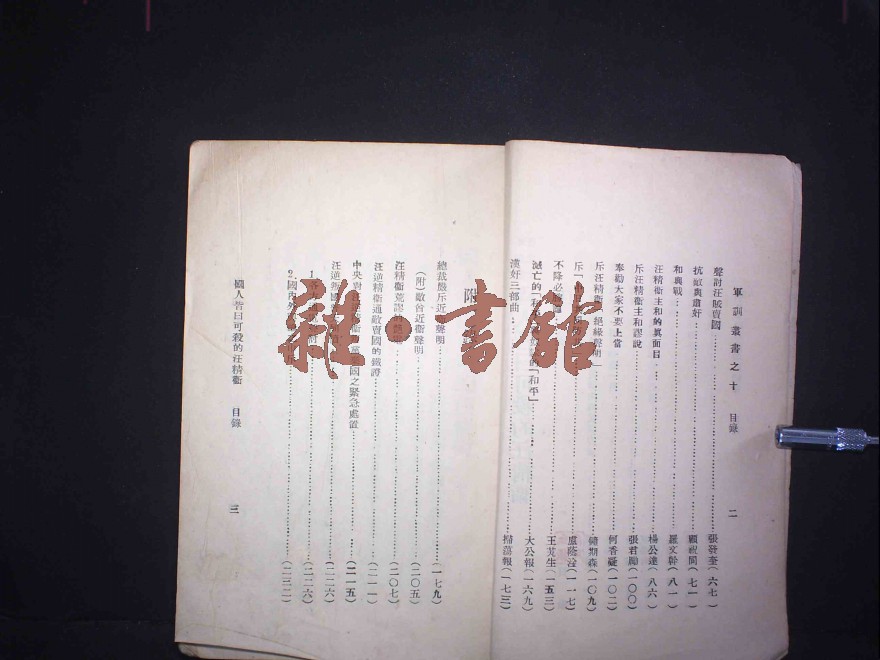 軍訓叢書之十 目錄 二
聲討汪賊賣國 張發奎(六七)
抗戰與鋤奸 顧祝同(七一)
和與戰 羅文幹(八一)
汪精衞主和的眞面目 楊公達(八六)
斥汪精衞主和謬說 張君勱(一〇〇)
奉勸大家不要上當 何香凝(一〇二)
斥汪精衞「絕緣聲明」 韓期森(一〇九)
斥「中 盧蔭淦(一一七)
不降必 王芃生(一五三)
滅亡的「和 的「和平」 大公報(一六九)
漢奸三部曲 掃蕩報(一七三)
附
總裁嚴斥近衞聲明 (一七九)
(附)敵首近衞聲明 (二〇五)
汪精衞荒謬 (二〇七)
汪逆精衞通敵賣國的鐵證 (二一一)
中央對汪 國之緊急處置 (二一五)
汪逆 國 (二二六)
1. (二二六)
2.國內外 (二三二)
國人皆曰可殺的汪精衞 目錄 三
雜·書館